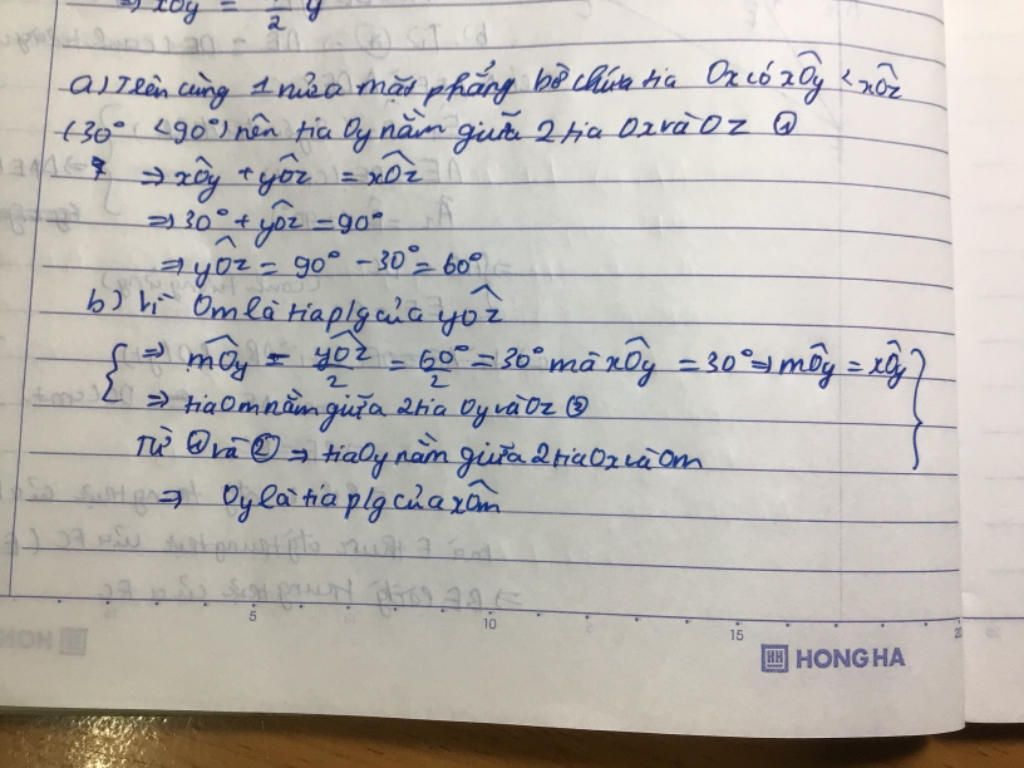 ⇒ xOy = 1/2 y
a) Trên cùng 1 nửa mặt phẳng bờ chứa tia Ox có xÔy < xÔz
(30° < 90°) nên tia Oy nằm giữa 2 tia Ox và Oz ①
⇒ xÔy + yÔz = xÔz
⇒ 30° + yÔz = 90°
⇒ yÔz = 90° - 30° = 60°
b) Vì Om là tia p/g của yÔz
⇒ mÔy = yÔz/2 = 60°/2 = 30° mà xÔy = 30° ⇒ mÔy = xÔy
⇒ tia Om nằm giữa 2 tia Oy và Oz ②
Từ ① và ② ⇒ tia Oy nằm giữa 2 tia Ox và Om
⇒ Oy là tia p/g của xÔm
5 10 15 20
HH HONG HA